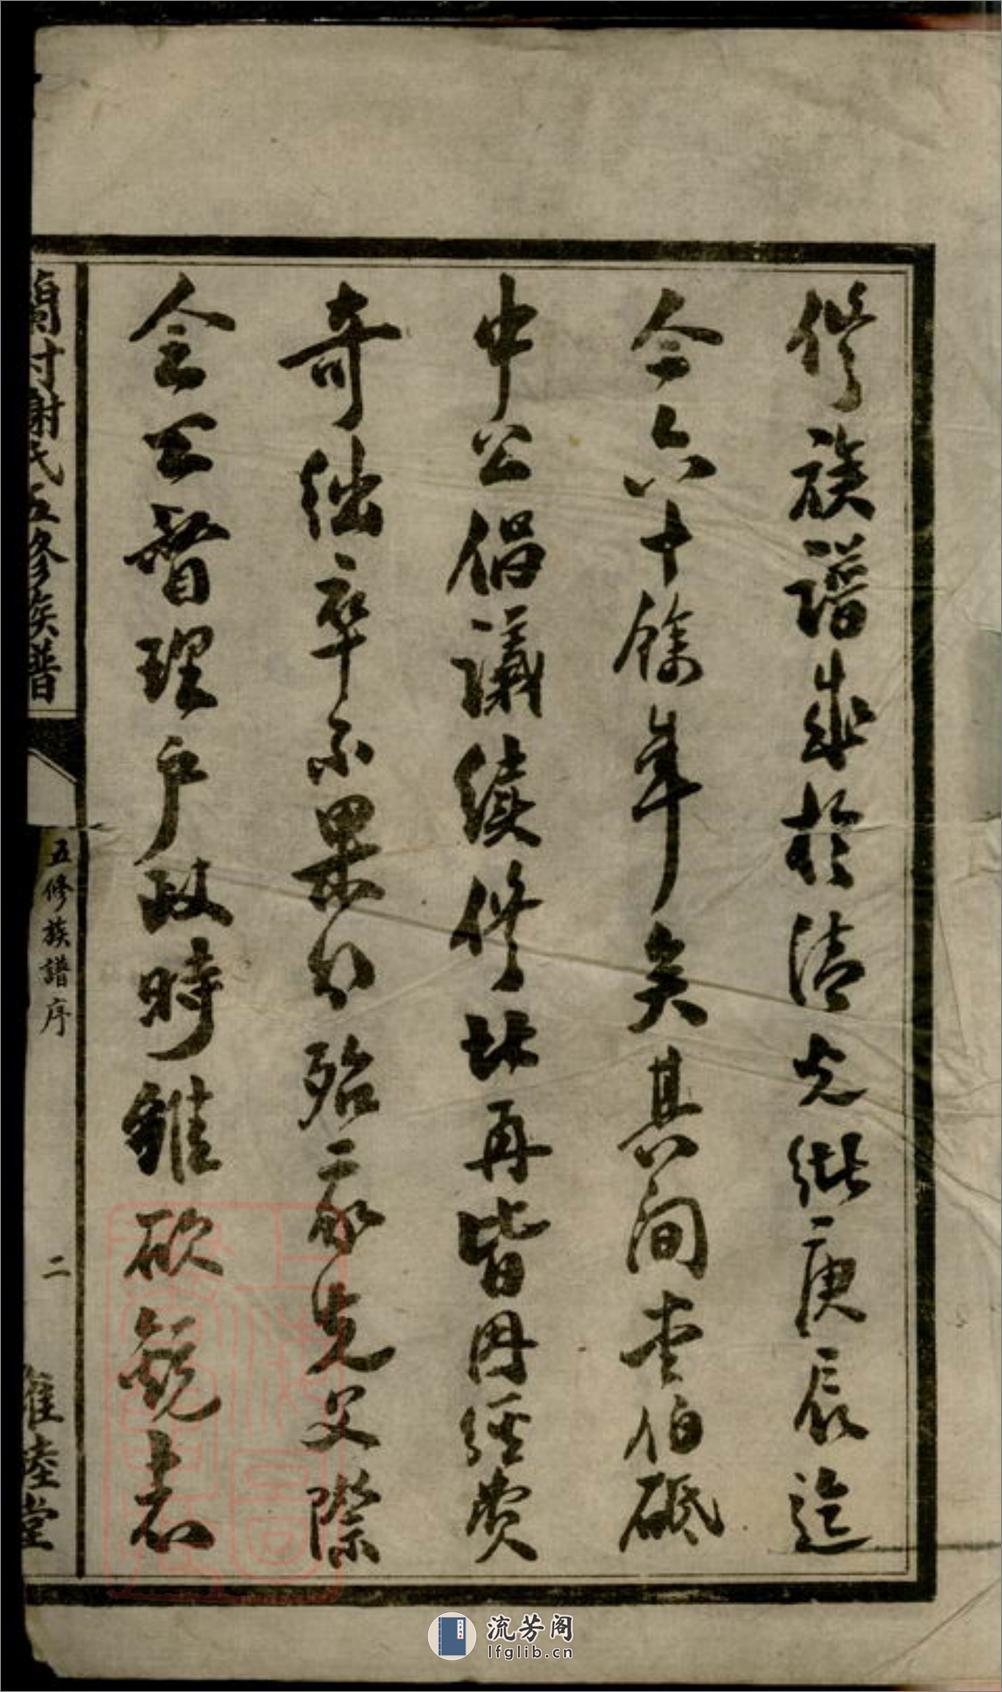 修族譜成於清光緒庚辰迄
今六十餘年矣其間堂伯砥
中公倡議續修非再皆因經費
奇絀卒不果行殆家先父際
會公督理戶政時雖欲銳志
蘭村謝氏五修族譜
五修族譜序
二
雍睦堂
流芳阁
lfglib.cn